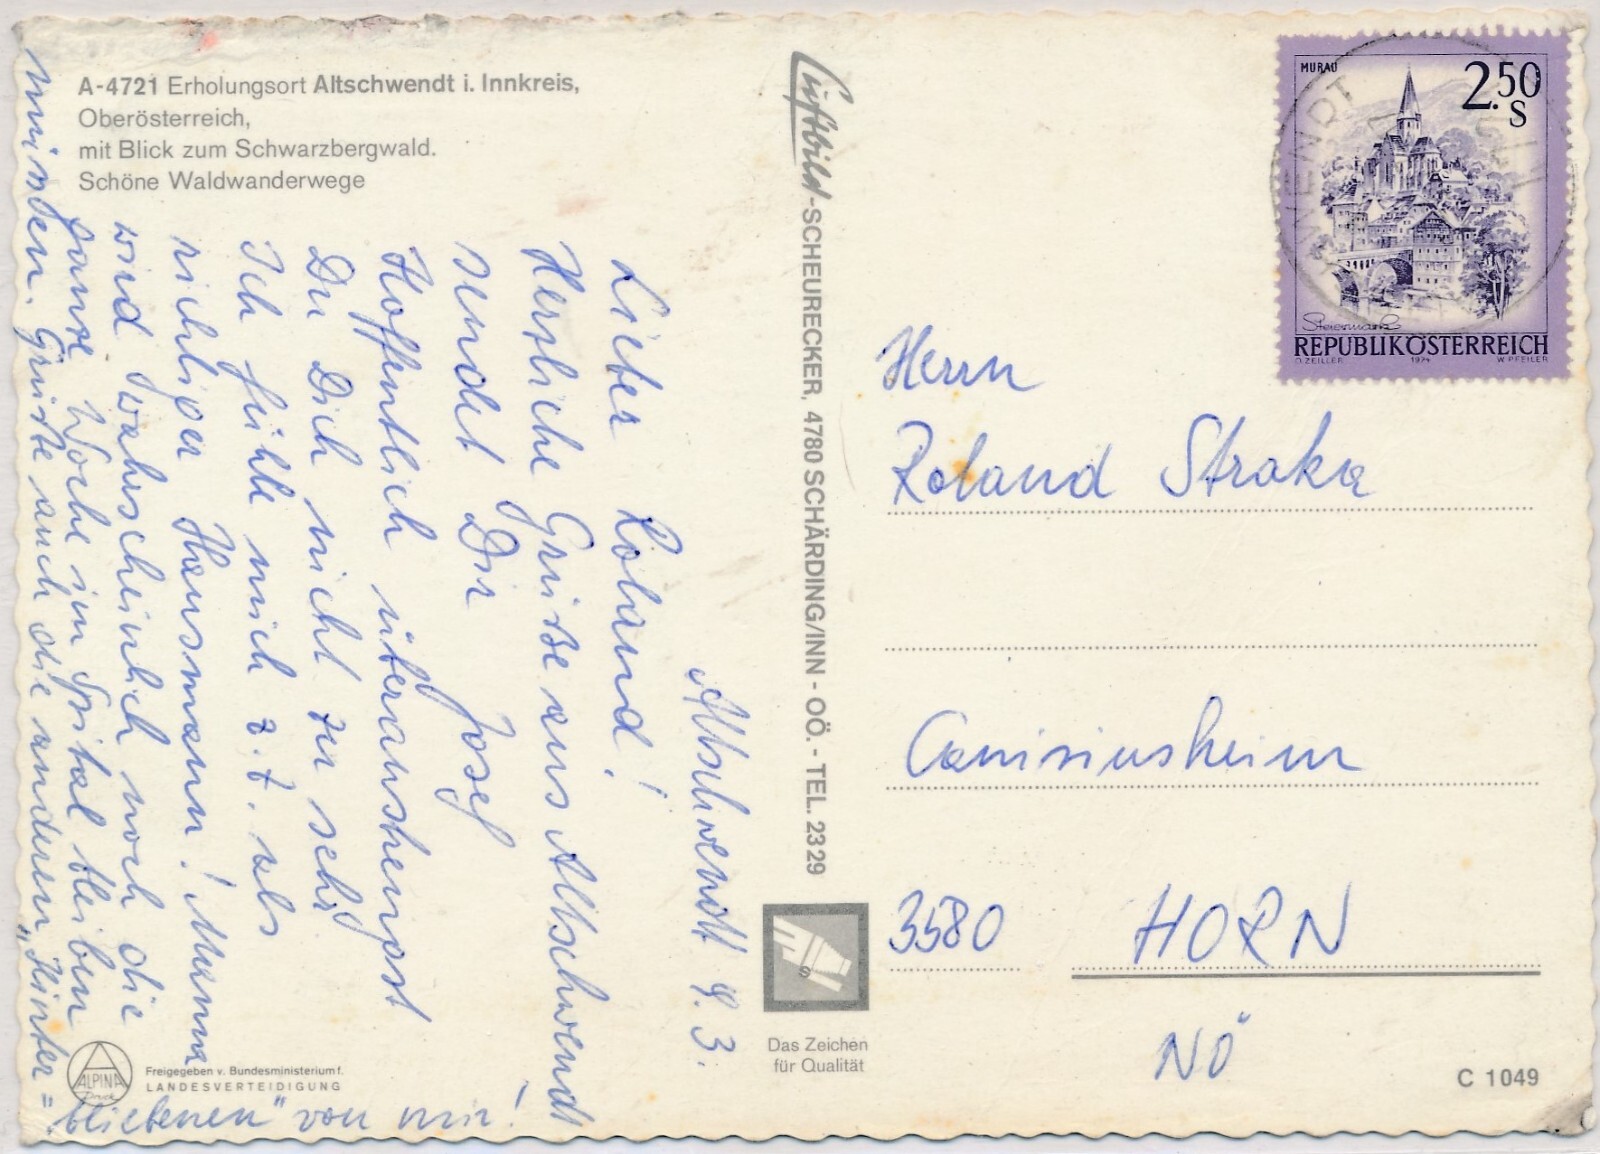 A-4721 Erholungsort Altschwendt i. Innkreis,
Oberösterreich,
mit Blick zum Schwarzbergwald.
Schöne Waldwanderwege
Altschwendt 9. 3.
Lieber Roland!
Herzliche Grüße aus Altschwendt
sendet Dir Josef
Hoffentlich überanstrengst
Du Dich nicht zu sehr
Ich fühle mich z. Z. als
richtiger Hausmann! Mama
wird wahrscheinlich noch die
ganze Woche im Spital bleiben
müssen. Grüße auch die anderen „Hinter=
bliebenen" von mir!
Luftbild-SCHEURECKER, 4780 SCHÄRDING/INN - OÖ. - TEL. 2329
Das Zeichen
für Qualität
ALPINA
Druck
Freigegeben v. Bundesministerium f.
LANDESVERTEIDIGUNG
MURAU
2.50
S
Steiermark
REPUBLIK ÖSTERREICH
O. ZEILLER 1974 W. PFEILER
Herrn
Roland Straka
Canisiusheim
3580 HORN
NÖ
C 1049